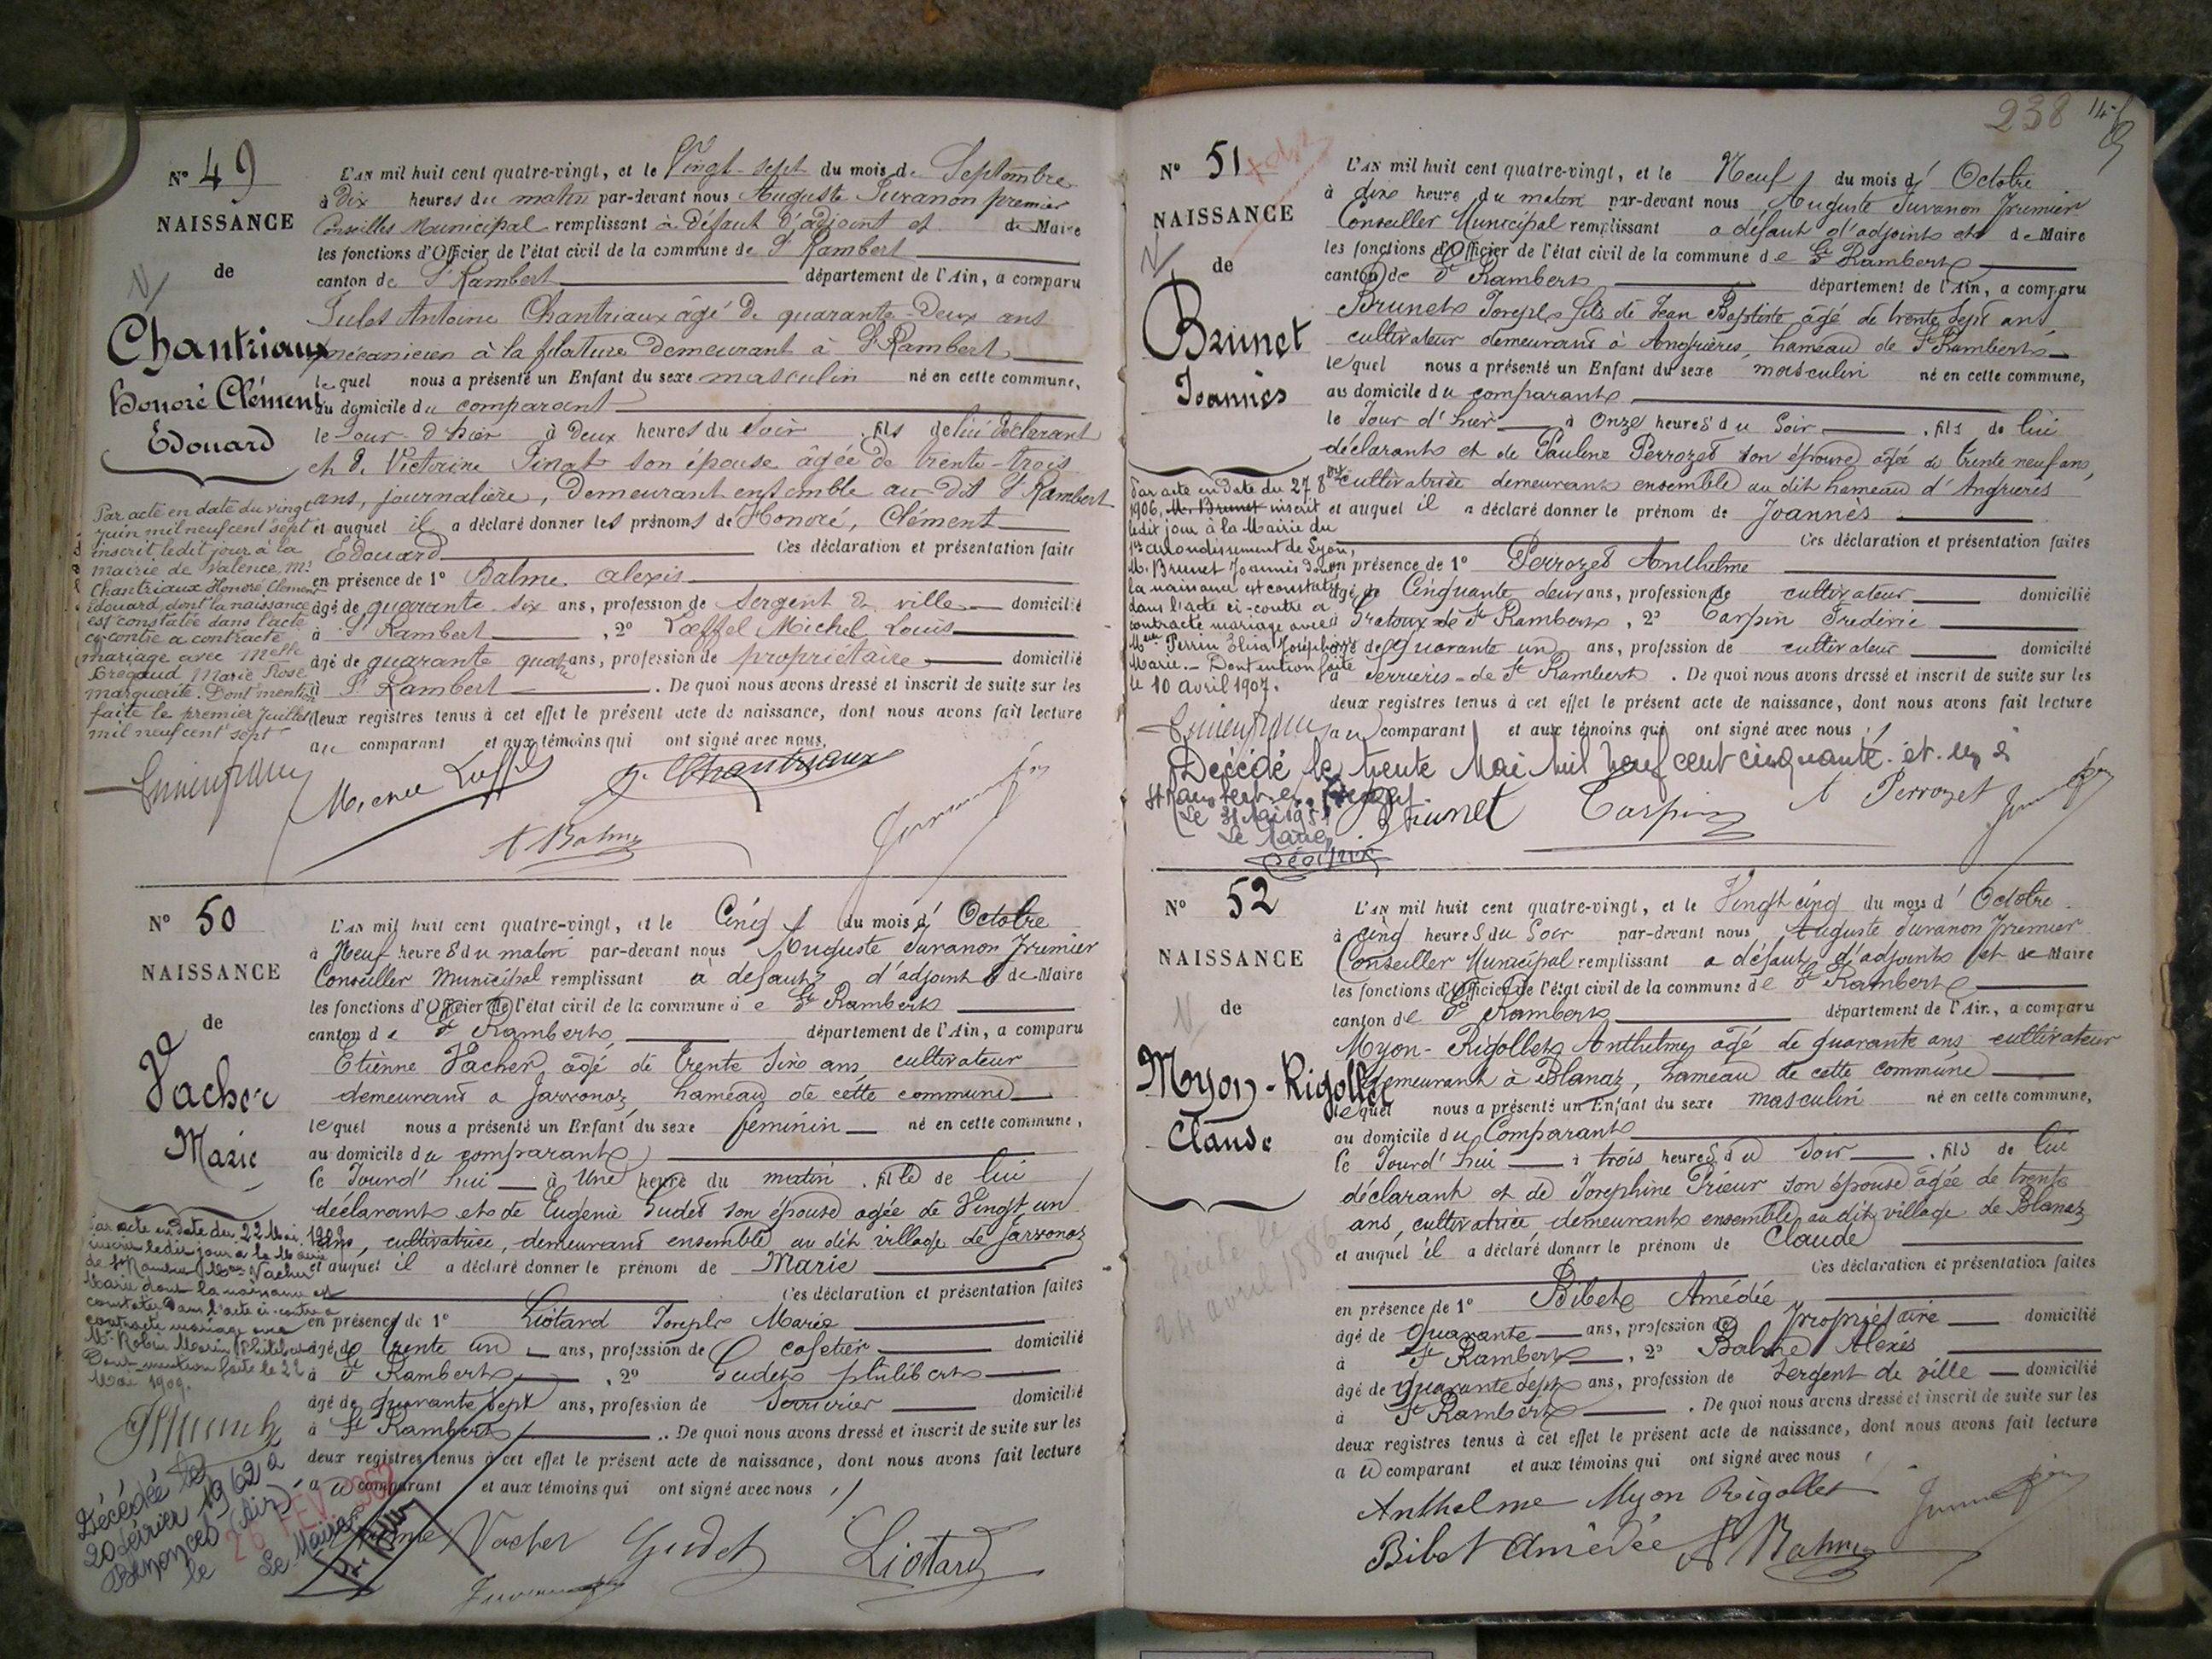 N° 49
NAISSANCE
de
Chantriaux
Honoré Clément
Edouard
L'AN mil huit cent quatre-vingt, et le Vingt-sept du mois de Septembre
à Dix heures du matin par-devant nous Auguste Juvanon premier
Conseiller Municipal remplissant à défaut d'adjoint et de Maire
les fonctions d'Officier de l'état civil de la commune de St Rambert
canton de St Rambert département de l'Ain, a comparu
Jules Antoine Chantriaux âgé de quarante-Deux ans
mécanicien à la filature Demeurant à St Rambert
lequel nous a présenté un Enfant du sexe masculin né en cette commune,
au domicile du comparant
le Jour d'hier à Deux heures du soir fils de lui déclarant
et de Victorine Pinat son épouse âgée de trente-trois
ans, journalière, Demeurant ensemble au dit St Rambert
et auquel il a déclaré donner les prénoms de Honoré, Clément
Edouard Ces déclaration et présentation faites
en présence de 1° Balme Alexis
âgé de quarante six ans, profession de Sergent de ville domicilié
à St Rambert , 2° Loeffel Michel Louis
âgé de quarante quatre ans, profession de propriétaire domicilié
à St Rambert . De quoi nous avons dressé et inscrit de suite sur les
deux registres tenus à cet effet le présent acte de naissance, dont nous avons fait lecture
au comparant et aux témoins qui ont signé avec nous.
Par acte en date du vingt
juin mil neuf cent sept
inscrit ledit jour à la
mairie de Valence, Mr
Chantriaux Honoré Clément
Edouard, dont la naissance
est constatée dans l'acte
ci-contre a contracté
mariage avec Melle
Brégaud Marie Rose
Marguerite. Dont mention
faite le premier Juillet
mil neuf cent sept
Michel Loeffel
J. Chantriaux
A Balme
N° 50
NAISSANCE
de
Vacher
Marie
L'AN mil huit cent quatre-vingt, et le Cinq du mois d'Octobre
à Neuf heures du matin par-devant nous Auguste Juvanon Premier
Conseiller Municipal remplissant à défaut d'adjoint & de Maire
les fonctions d'Officier de l'état civil de la commune de St Rambert
canton de St Rambert département de l'Ain, a comparu
Etienne Vacher, agé de trente Six ans, cultivateur
demeurant a Javronoz hameau de cette commune
lequel nous a présenté un Enfant du sexe feminin né en cette commune,
au domicile du comparant
le Jourd'hui à Une heure du matin . fille de lui
déclarant et de Eugenie Gudet son épouse agée de Vingt un
ans, cultivatrice, demeurant ensemble au dit village de Javronoz
et auquel il a déclaré donner le prénom de Marie
Ces déclaration et présentation faites
en présence de 1° Liotard Joseph Marie
âgé de trente un ans, profession de cafetier domicilié
à St Rambert , 2° Gudet philibert
âgé de quarante sept ans, profession de Serrurier domicilié
à St Rambert . De quoi nous avons dressé et inscrit de suite sur les
deux registres tenus à cet effet le présent acte de naissance, dont nous avons fait lecture
au comparant et aux témoins qui ont signé avec nous
Par acte en date du 22 Mai 1909
inscrit ledit jour a la Mairie
de St Rambert Melle Vacher
Marie dont la naissance est
constatée dans l'acte ci-contre a
contracté mariage avec
Mr Robin Marin Philibert
Dont mention faite le 22
Mai 1909.
Décédée le
20 février 1962 à
Bénonces (Ain)
le 26 FEV. 1962
Le Maire
Vacher Gudet Liotard
238
N° 51
NAISSANCE
de
Brunet
Joannès
L'AN mil huit cent quatre-vingt, et le Neuf du mois d'Octobre
à dix heure du matin par-devant nous Auguste Juvanon Premier
Conseiller Municipal remplissant a défaut d'adjoint et de Maire
les fonctions d'Officier de l'état civil de la commune de St Rambert
canton de St Rambert département de l'Ain, a comparu
Brunet Joseph fils de Jean Baptiste âgé de trente sept ans
cultivateur demeurant à Angrières, hameau de St Rambert
lequel nous a présenté un Enfant du sexe masculin né en cette commune,
au domicile du comparant
le Jour d'hier à Onze heures du Soir , fils de lui
déclarant et de Pauline Perrozet son épouse agée de trente neuf ans,
cultivatrice demeurant ensemble au dit hameau d'Angrières
et auquel il a déclaré donner le prénom de Joannès
Ces déclaration et présentation faites
en présence de 1° Perrozet Anthelme
âgé de Cinquante deux ans, profession de cultivateur domicilié
à Gratoux de St Rambert , 2° Carpin Frédéric
âgé de quarante un ans, profession de cultivateur domicilié
à Serrières-de St Rambert . De quoi nous avons dressé et inscrit de suite sur les
deux registres tenus à cet effet le présent acte de naissance, dont nous avons fait lecture
au comparant et aux témoins qui ont signé avec nous
Par acte en date du 27 8bre
1906, M. Brunet inscrit
ledit jour à la Mairie du
1er arrondissement de Lyon,
M. Brunet Joannès dont
la naissance est constatée
dans l'acte ci-contre a
contracté mariage avec
Melle Perrin Elisa Joséphine
Marie. - Dont mention faite
le 10 avril 1907.
Décédé le trente Mai mil neuf cent cinquante et un à
Le 31 Mai 1951
Le Maire
Brunet Carpin A Perrozet
N° 52
NAISSANCE
de
Myon-Rigollet
Claude
L'AN mil huit cent quatre-vingt, et le Vingt cinq du mois d'Octobre
à cinq heures du Soir par-devant nous Auguste Juvanon Premier
Conseiller Municipal remplissant a défaut d'adjoint et de Maire
les fonctions d'Officier de l'état civil de la commune de St Rambert
canton de St Rambert département de l'Ain, a comparu
Myon-Rigollet Anthelme agé de quarante ans cultivateur
demeurant à Blanaz, hameau de cette commune
lequel nous a présenté un Enfant du sexe masculin né en cette commune,
au domicile du Comparant
le Jourd'hui à trois heures du Soir , fils de lui
déclarant et de Josephine Prieur son épouse agée de trente
ans, cultivatrice demeurant ensemble au dit village de Blanaz
et auquel il a déclaré donner le prénom de Claude
Ces déclaration et présentation faites
en présence de 1° Bibet Amédée
âgé de Quarante ans, profession de Propriétaire domicilié
à St Rambert , 2° Balme Alexis
âgé de quarante sept ans, profession de Sergent de ville domicilié
à St Rambert . De quoi nous avons dressé et inscrit de suite sur les
deux registres tenus à cet effet le présent acte de naissance, dont nous avons fait lecture
au comparant et aux témoins qui ont signé avec nous
24 avril 1886
Anthelme Myon Rigollet
Bibet Amédée A Balme